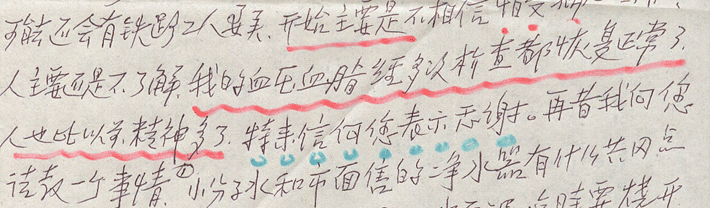 可能还会有铁路工人要买.开始主要是不相信怕受
人主要还是不了解.我的血压血脂经多次检查都恢复正常了.
人也比以前精神多了.特来信向您表示感谢。再者我向您
请教一个事情.①小分子水和市面售的净水器有什么共同点
时要烧开